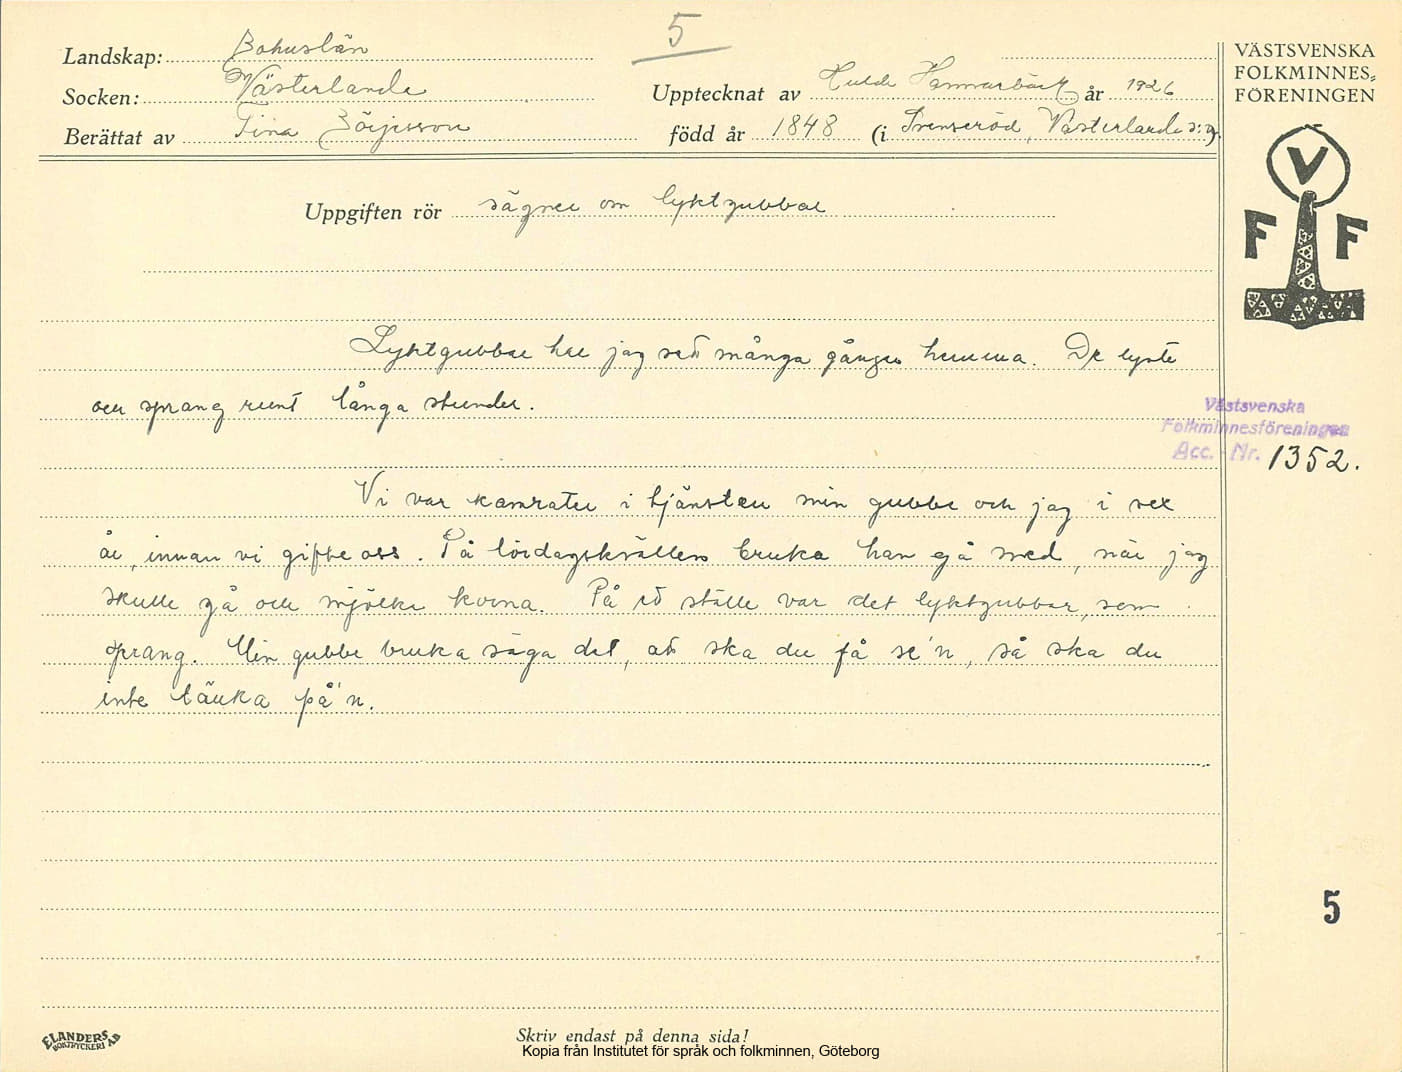 5
Landskap: Bohuslän
Socken: Västerlanda
Berättat av Tina Börjesson
Upptecknat av Hulda Hammarbäck år 1926
född år 1848 (i Svenseröd, Västerlanda s:n).
VÄSTSVENSKA
FOLKMINNES-
FÖRENINGEN
V
F F
Uppgiften rör sägner om lyktgubbar
Lyktgubbar har jag sett många gånger hemma. De lyste
och sprang runt långa stunder.
Västsvenska
Folkminnesföreningen
Acc. - Nr. 1352.
Vi var kamrater i tjänsten min gubbe och jag i sex
år, innan vi gifte oss. På lördagskvällen bruka han gå med, när jag
skulle gå och mjölka korna. På ett ställe var det lyktgubbar, som
sprang. Min gubbe bruka säga det, att ska du få se'n, så ska du
inte tänka på'n.
5
ELANDERS
BOKTRYCKERI AB
Skriv endast på denna sida!
Kopia från Institutet för språk och folkminnen, Göteborg